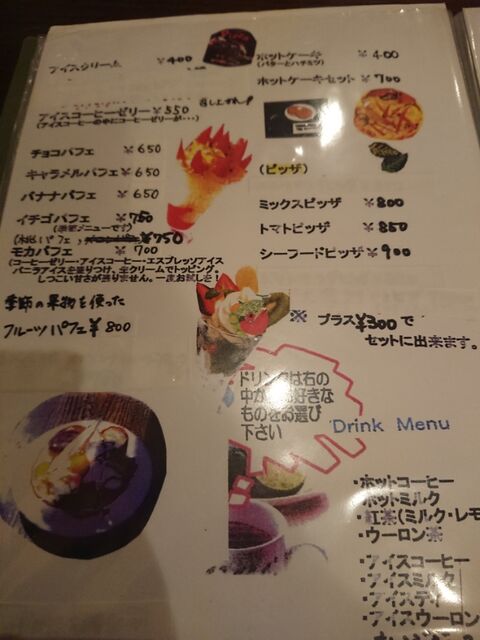 アイスクリーム ¥400
アイスコーヒーゼリー ¥550
(アイスコーヒーの中にコーヒーゼリーが・・・)
チョコパフェ ¥650
キャラメルパフェ ¥650
バナナパフェ ¥650
イチゴパフェ ¥750
(季節メニューです)
(桃パフェ ¥750
モカパフェ ¥700
(コーヒーゼリー・アイスコーヒー・エスプレッソアイス
バニラアイスを盛りつけ、生クリームでトッピング。
しつこい甘さが残りません。一度お試しを!
季節の果物を使った
フルーツパフェ ¥800
ホットケーキ ¥400
(バターとハチミツ)
ホットケーキセット ¥700
(ピッザ)
ミックスピッザ ¥800
トマトピッザ ¥850
シーフードピッザ ¥900
※ プラス¥300で
セットに出来ます。
ドリンクは右の
中からお好きな
ものをお選び
下さい
Drink Menu
・ホットコーヒー
・ホットミルク
・紅茶(ミルク・レモ
・ウーロン茶
・アイスコーヒー
・アイスミルク
・アイスティー
・アイスウーロン